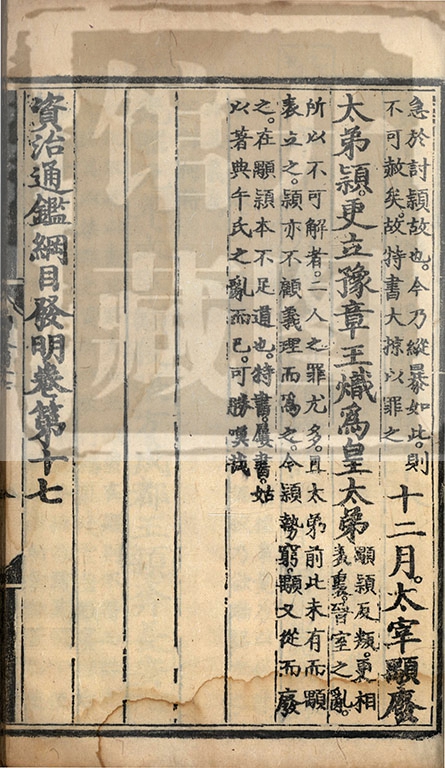 急於討頴故也。今乃縱暴如此。則
不可赦矣。故特書大掠以罪之
十二月。太宰顒廢
太弟頴。更立豫章王熾爲皇太弟
顒頴反類。更相
表裏。晉室之亂。
所以不可解者。二人之罪尤多。且太弟前此未有而顒
表立之。頴亦不顧義理而爲之。今頴勢窮。顒又從而廢
之。在顒頴本不足道也。特書。屢書。姑
以著典午氏之亂而已。可勝嘆哉
資治通鑑綱目發明卷第十七
馆藏